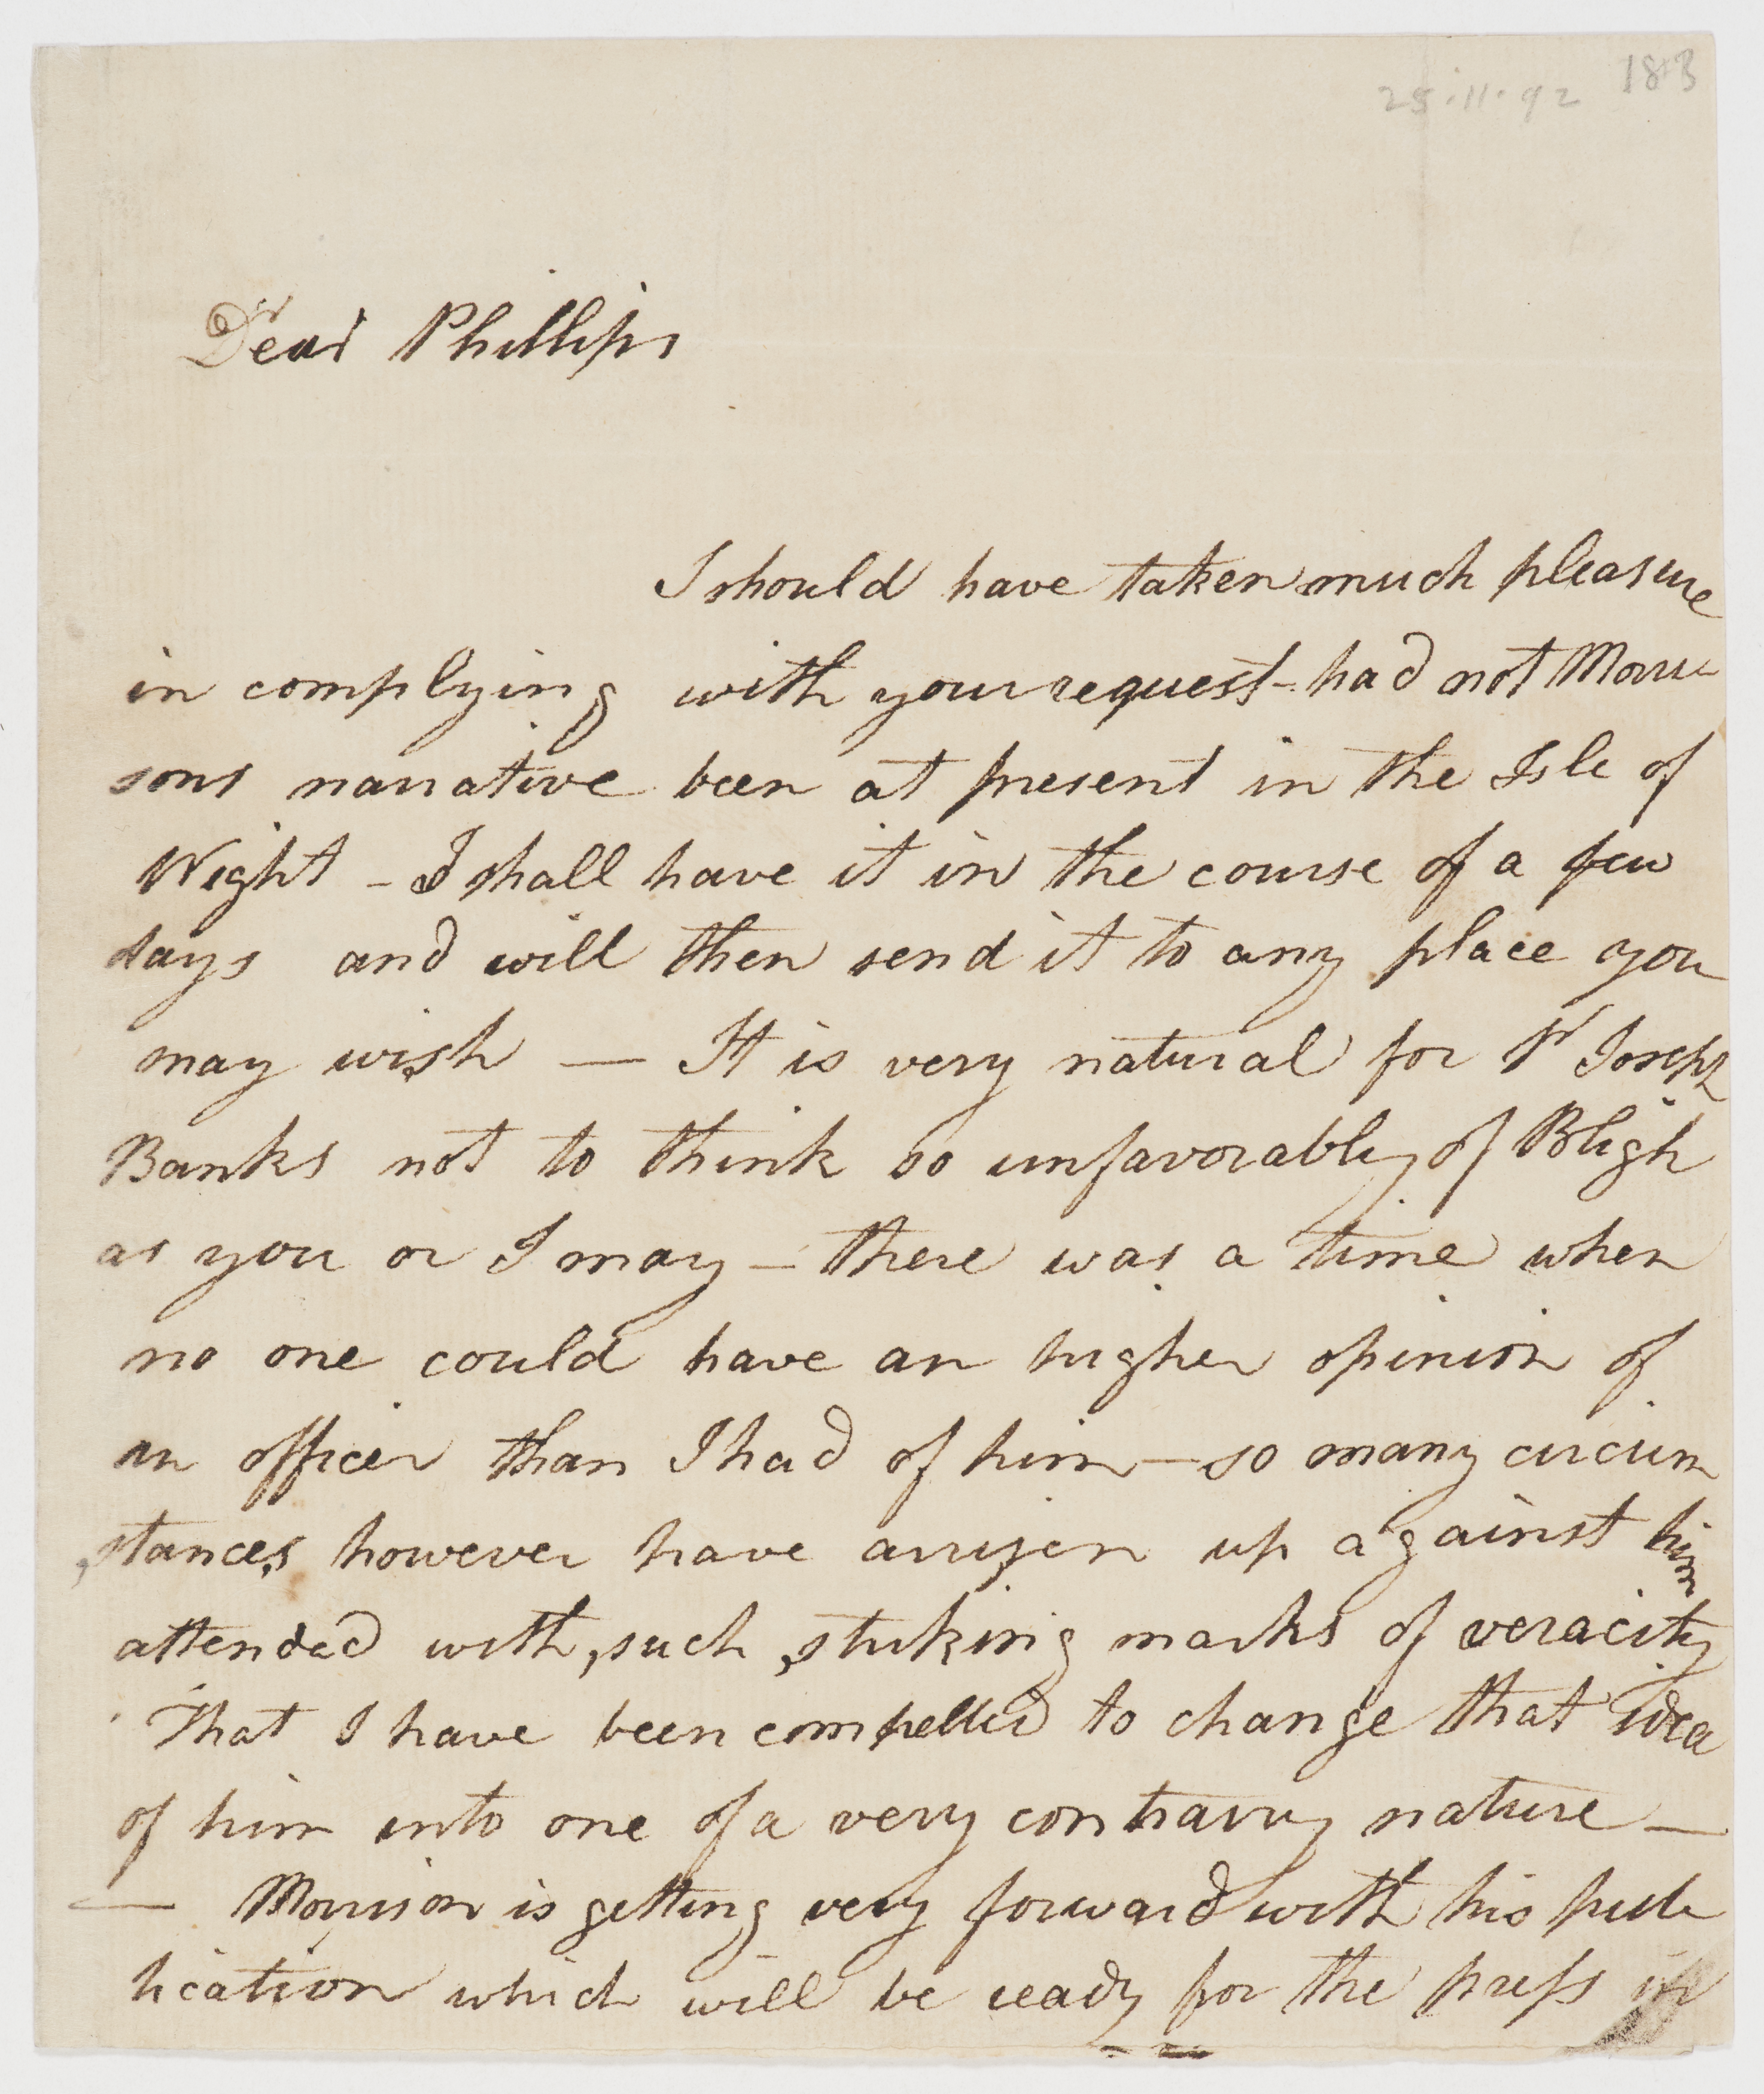 25.11.92 183
Dear Phillips
I should have taken much pleasure
in complying with your request - had not Morri
sons narrative been at present in the Isle of
Wight - I shall have it in the course of a few
days and will then send it to any place you
may wish — It is very natural for Sr Joseph
Banks not to think so unfavorably of Bligh
as you or I may - there was a time when
no one could have an higher opinion of
an officer than I had of him - so many circum
stances however have arrisen up against him
attended with such striking marks of veracity
That I have been compelled to change that idea
of him into one of a very contrarry nature —
— Morrison is getting very forward with his pub
lication which will be ready for the press in